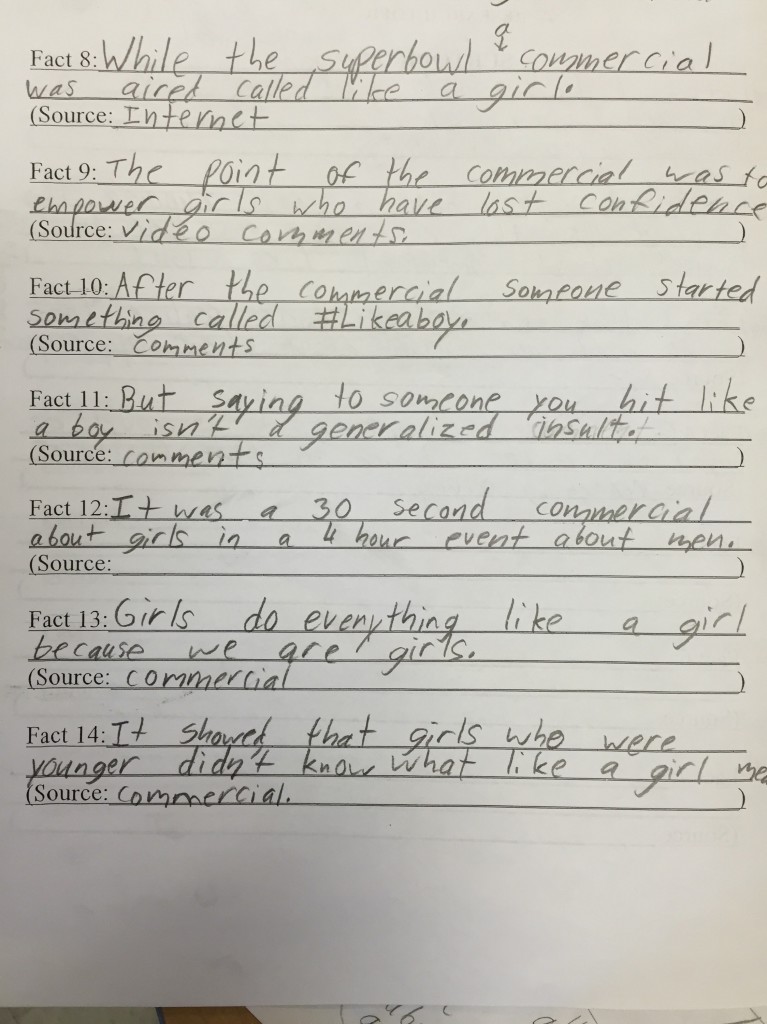 Fact 8: While the superbowl a commercial
was aired called like a girl.
(Source: Internet)
Fact 9: The point of the commercial was to
empower girls who have lost confidence
(Source: video comments.)
Fact 10: After the commercial someone started
something called #Likeaboy.
(Source: comments)
Fact 11: But saying to someone you hit like
a boy isn't a generalized insult.
(Source: comments)
Fact 12: It was a 30 second commercial
about girls in a 4 hour event about men.
(Source: )
Fact 13: Girls do everything like a girl
because we are girls.
(Source: commercial)
Fact 14: It showed that girls who were
younger didn't know what like a girl me
(Source: commercial.)